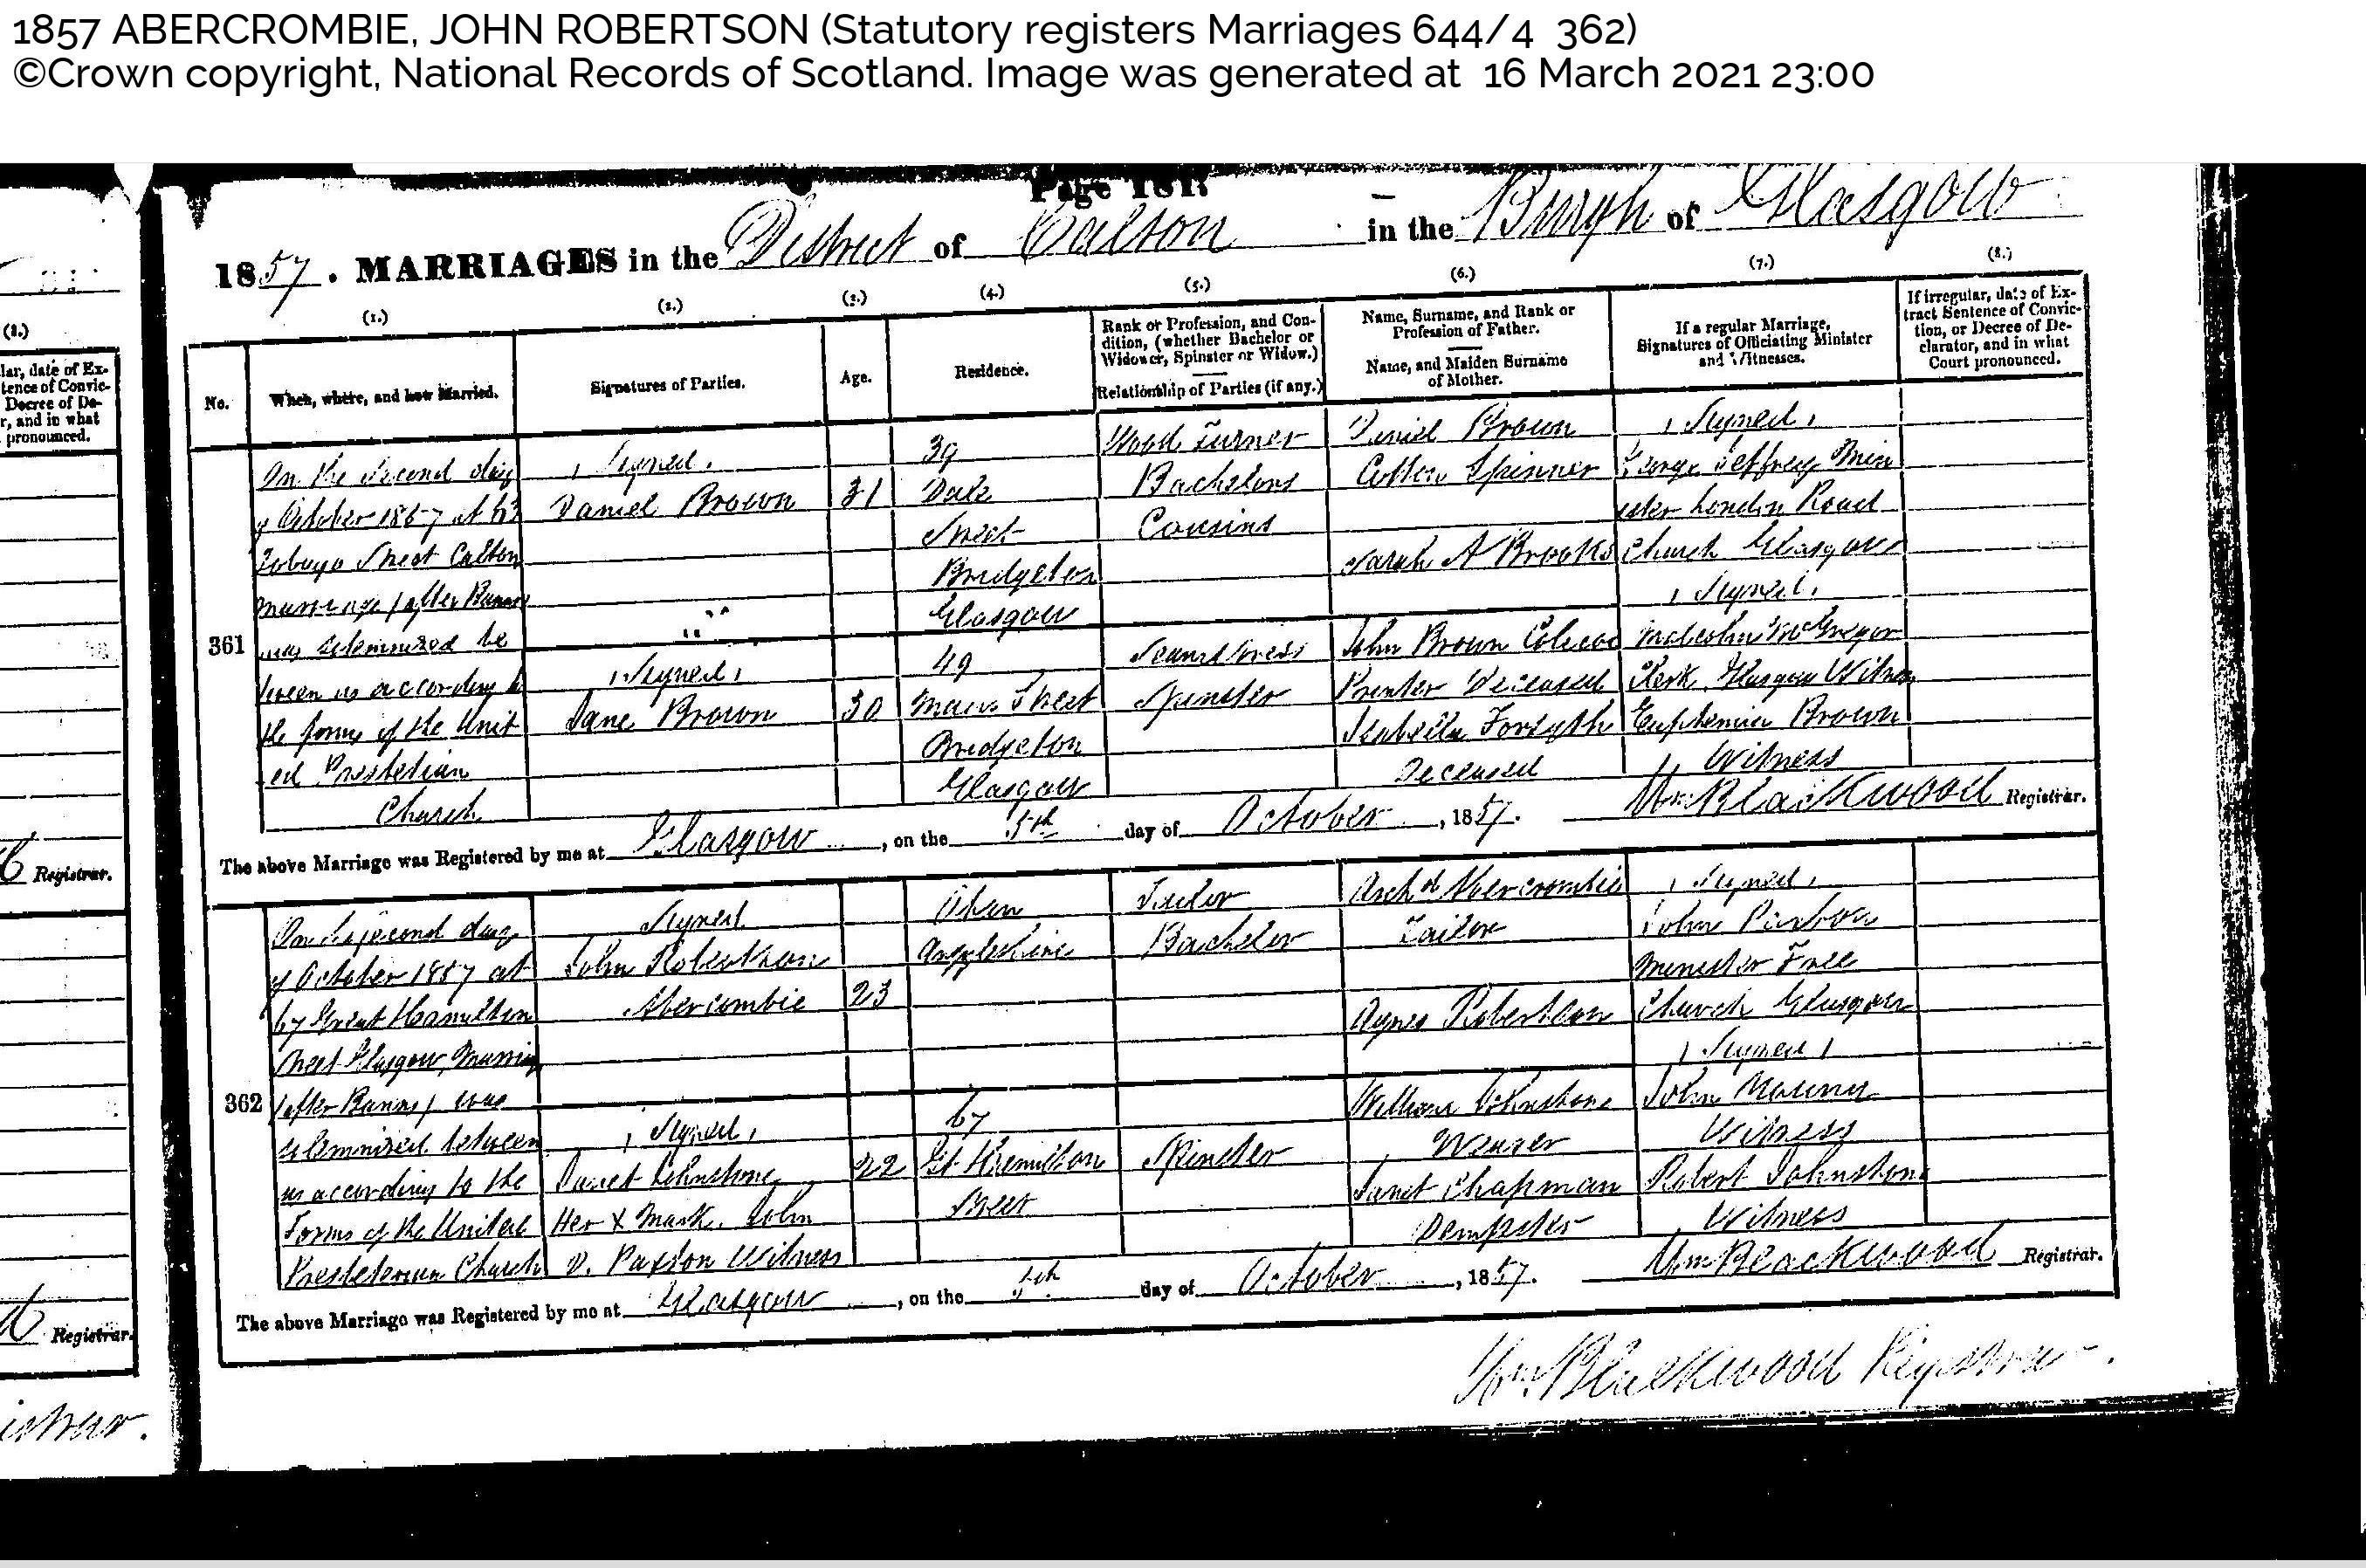 1857 ABERCROMBIE, JOHN ROBERTSON (Statutory registers Marriages 644/4 362)
©Crown copyright, National Records of Scotland. Image was generated at 16 March 2021 23:00
Page 181.
1857. MARRIAGES in the District of Calton in the Burgh of Glasgow
(1.) (2.) (3.) (4.) (5.) (6.) (7.) (8.)
No.
When, where, and how Married.
Signatures of Parties.
Age.
Residence.
Rank or Profession, and Con-
dition, (whether Bachelor or
Widower, Spinster or Widow.)
Relationship of Parties (if any.)
Name, Surname, and Rank or
Profession of Father.
Name, and Maiden Surname
of Mother.
If a regular Marriage,
Signatures of Officiating Minister
and Witnesses.
If irregular, date of Ex-
tract Sentence of Convic-
tion, or Decree of De-
clarator, and in what
Court pronounced.
361
On the Second day
of October 1857 at 63
Street Calton
Marriage (after Banns)
was solemnized be
tween us according to
the forms of the Unit
ed Presbetian
Church
(Signed)
Daniel Brown
(Signed)
Jane Brown
31
30
39
Dale
Street
Bridgeton
Glasgow
49
Main Street
Bridgeton
Glasgow
Wood Turner
Bachelor
Cousins
Seamstress
Spinster
Daniel Brown
Cotton Spinner
Sarah A Brooks
John Brown
Printer Deceased
Isabella Forsyth
Deceased
(Signed)
George Jeffrey Min
ister London Road
Church Glasgow
(Signed)
Malcolm McGregor
Clerk, Glasgow Witness
Euphemia Brown
Witness
The above Marriage was Registered by me at Glasgow, on the 5th day of October, 1857. Wm Blackwood Registrar.
362
On the second day
of October 1857 at
67 Great Hamilton
Street Glasgow, Marriage
(after Banns) was
solemnized between
us according to the
Forms of the United
Presbeterian Church
Signed
John Robertson
Abercombie
(Signed)
Janet Johnstone
Her X Mark. John
D. Paxton Witness
23
22
Oban
Argyleshire
67
Gt Hamilton
Street
Tailor
Bachelor
Spinster
Archd Abercrombie
Tailor
Agnes Robertson
William Johnstone
Weaver
Janet Chapman
Dempster
(Signed)
John Paxton
Minister Free
Church Glasgow
(Signed)
John
Witness
Robert Johnstone
Witness
The above Marriage was Registered by me at Glasgow, on the 5th day of October, 1857. Wm Blackwood Registrar.
Wm Blackwood Registrar.
(8.)
lar, date of Ex-
tence of Convic-
Decree of De-
r, and in what
pronounced.
Registrar.
Registrar.